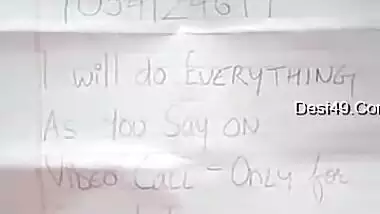 I will do EVERYTHING
Desi49.Com
As You Say ON
VIDEO CALL - ONLY for